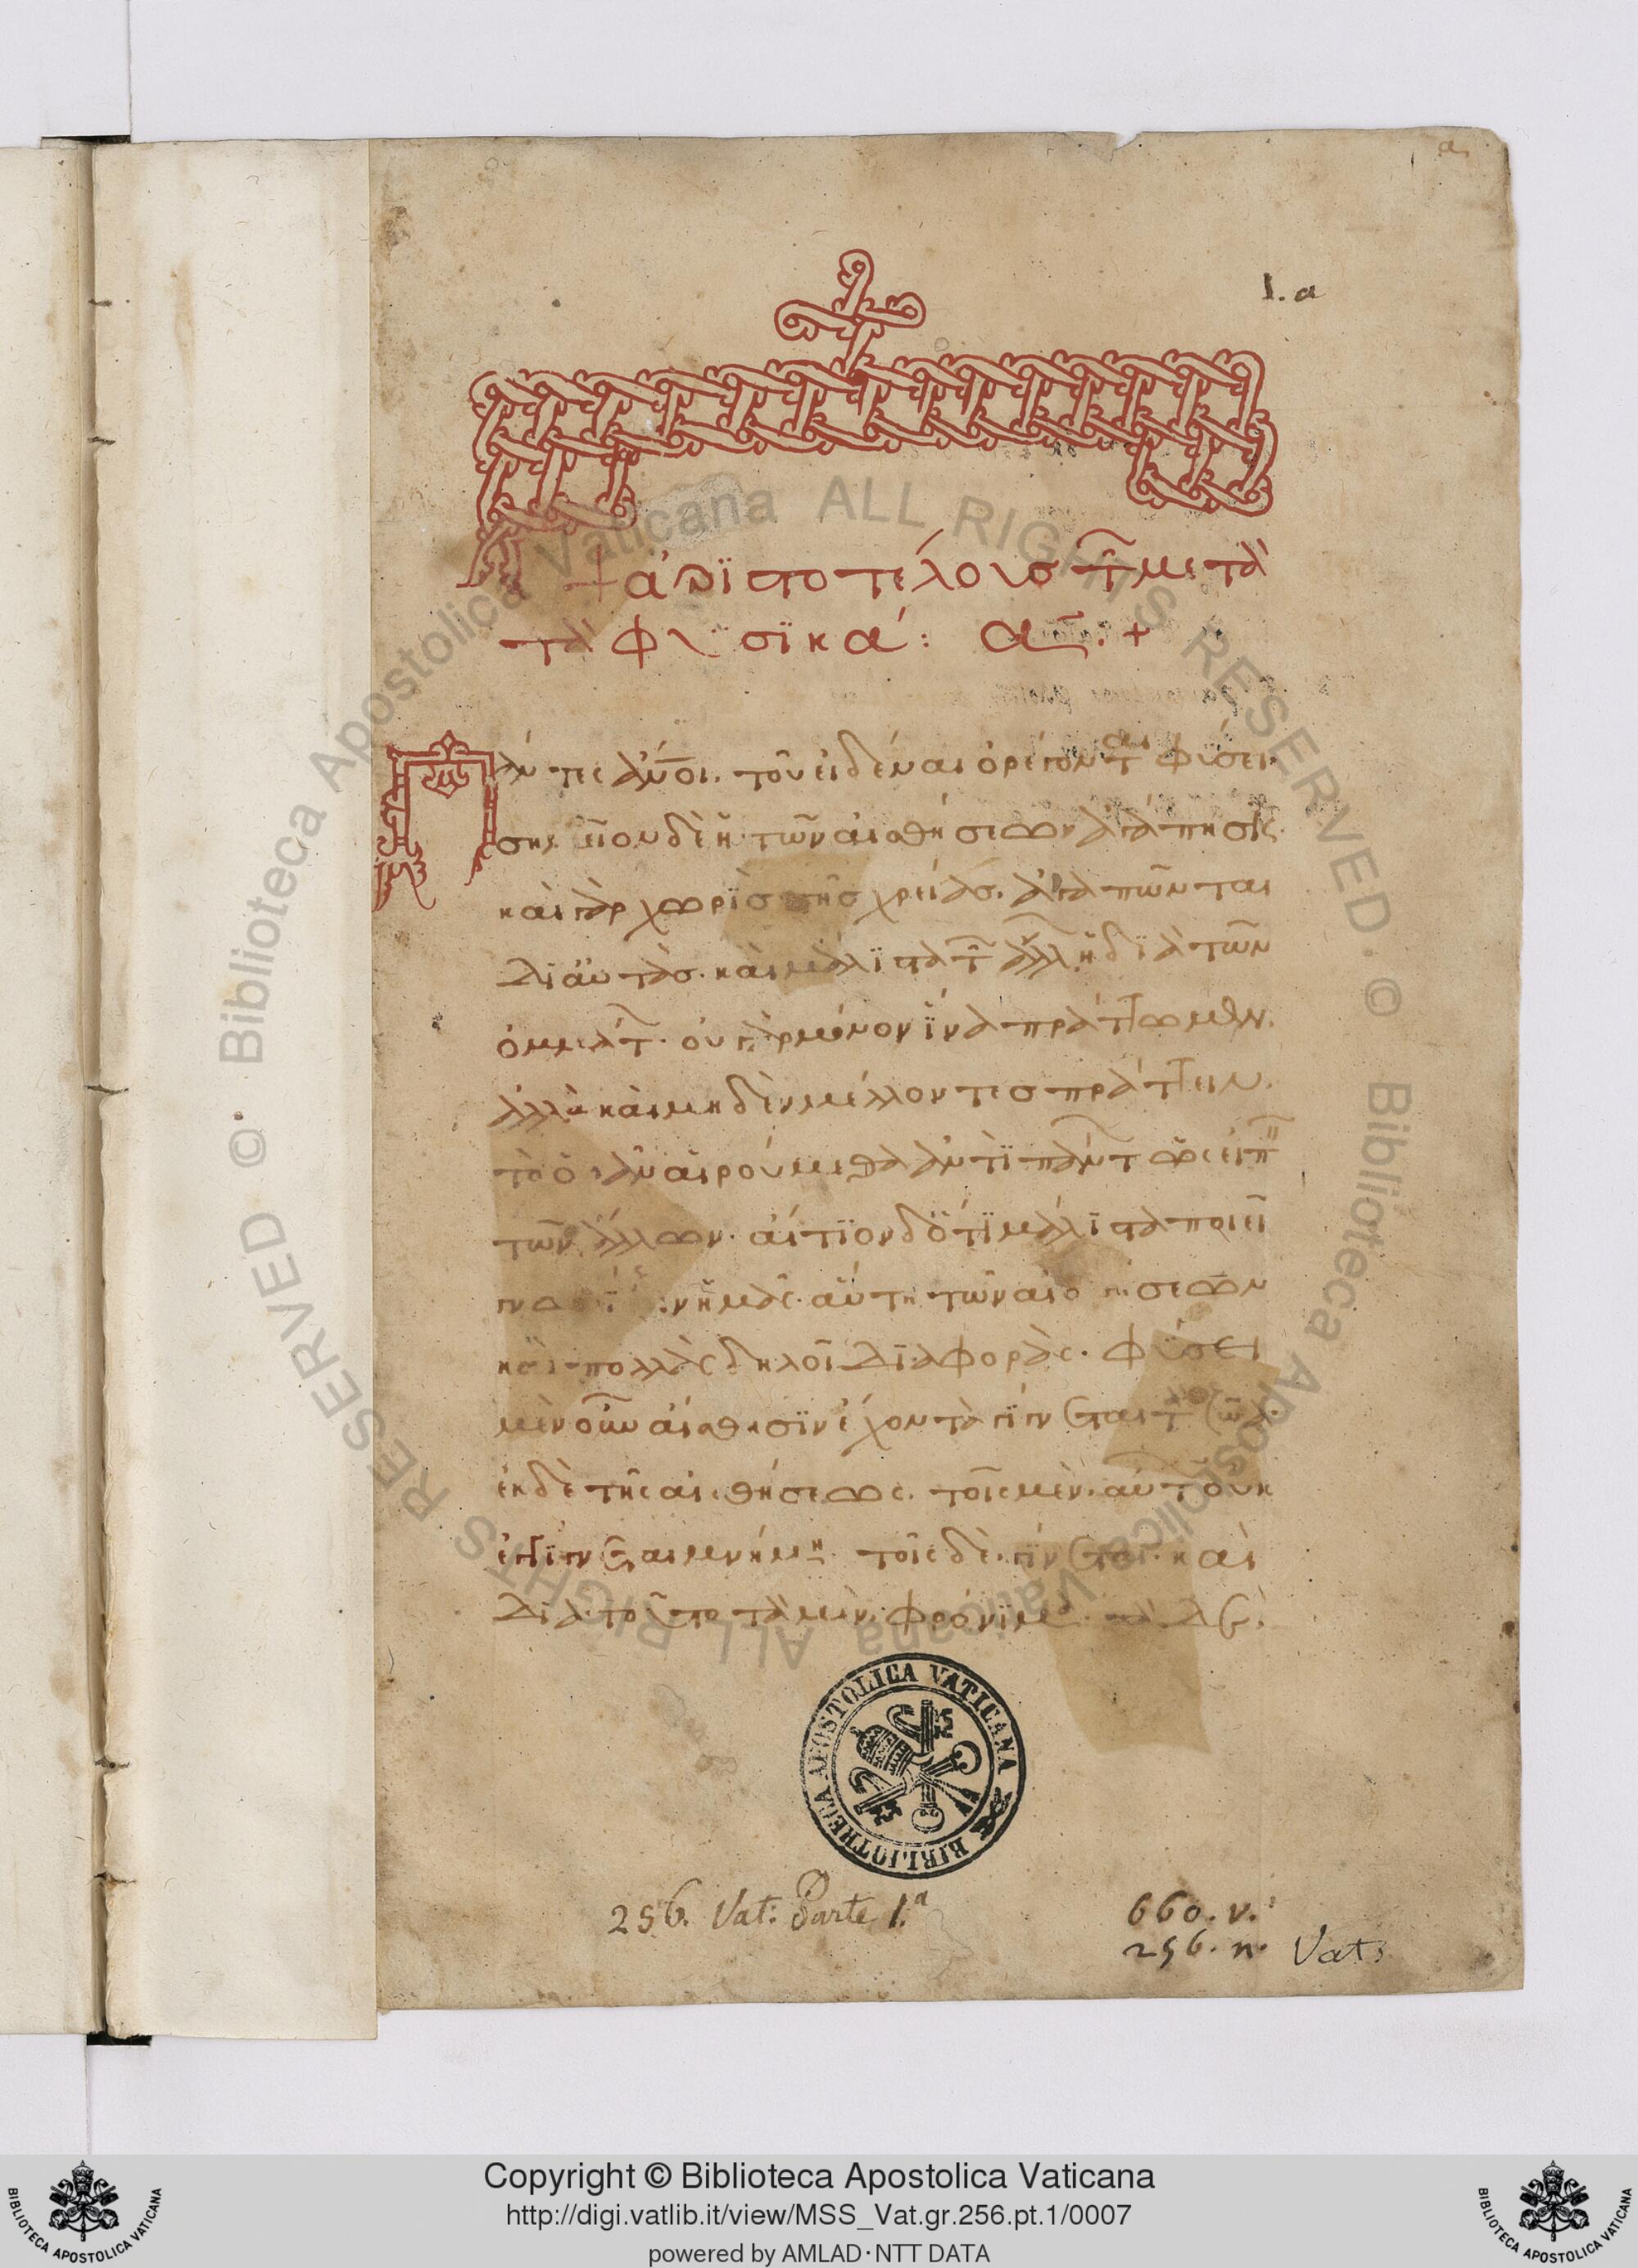 α
1. a
+ ἀριστοτέλους τῶν μετὰ
τὰ φυσϊκά : α. +
Πάντες ἄνοι. τοῦ εἰδέναι ὀρέγονται φύσει.
σημεῖον δὲ ἡ τῶν αἰσθήσεων ἀγάπησις.
καὶ γὰρ χωρὶσ τῆσ χρείασ. ἀγαπῶνται
δι αὑτὰσ. καὶ μάλϊστα τῶν ἄλλων ἡ δϊὰ τῶν
ὀμμάτων. οὐ γὰρ μόνον ἵνα πράττωμεν.
ἀλλὰ καὶ μηδὲν μέλλοντεσ πράττειν.
τὸ ὁρᾶν αἱρούμεθα ἀντὶ πάντων ὡς εἰπεῖν
τῶν ἄλλων. αἴτϊον δ ὅτι μάλϊστα ποιεῖ
ἡμᾶς. αὕτη τῶν αἰσθήσεων
καὶ πολλὰς δηλοῖ διαφορὰς. φύσει
μὲν οὖν αἴσθησϊν ἔχοντα γίγνεται τὰ ζῶα.
ἐκ δὲ τῆς αἰσθήσεως. τοῖς μὲν. αὐτῶν οὐκ
ἐγγίγνεται μνήμη. τοῖς δὲ. γίγνεται. καὶ
δϊὰ τοῦτο τὰ μὲν φρόνϊμα. τὰ δὲ.
BIBLIOTHECA APOSTOLICA VATICANA
256. Vat. Parte 1.a
660. v.
256. n. Vat.
© Biblioteca Apostolica Vaticana ALL RIGHTS RESERVED. © Biblioteca Apostolica Vaticana ALL RIGHTS RESERVED
BIBLIOTECA APOSTOLICA VATICANA
Copyright © Biblioteca Apostolica Vaticana
http://digi.vatlib.it/view/MSS_Vat.gr.256.pt.1/0007
powered by AMLAD·NTT DATA
BIBLIOTECA APOSTOLICA VATICANA